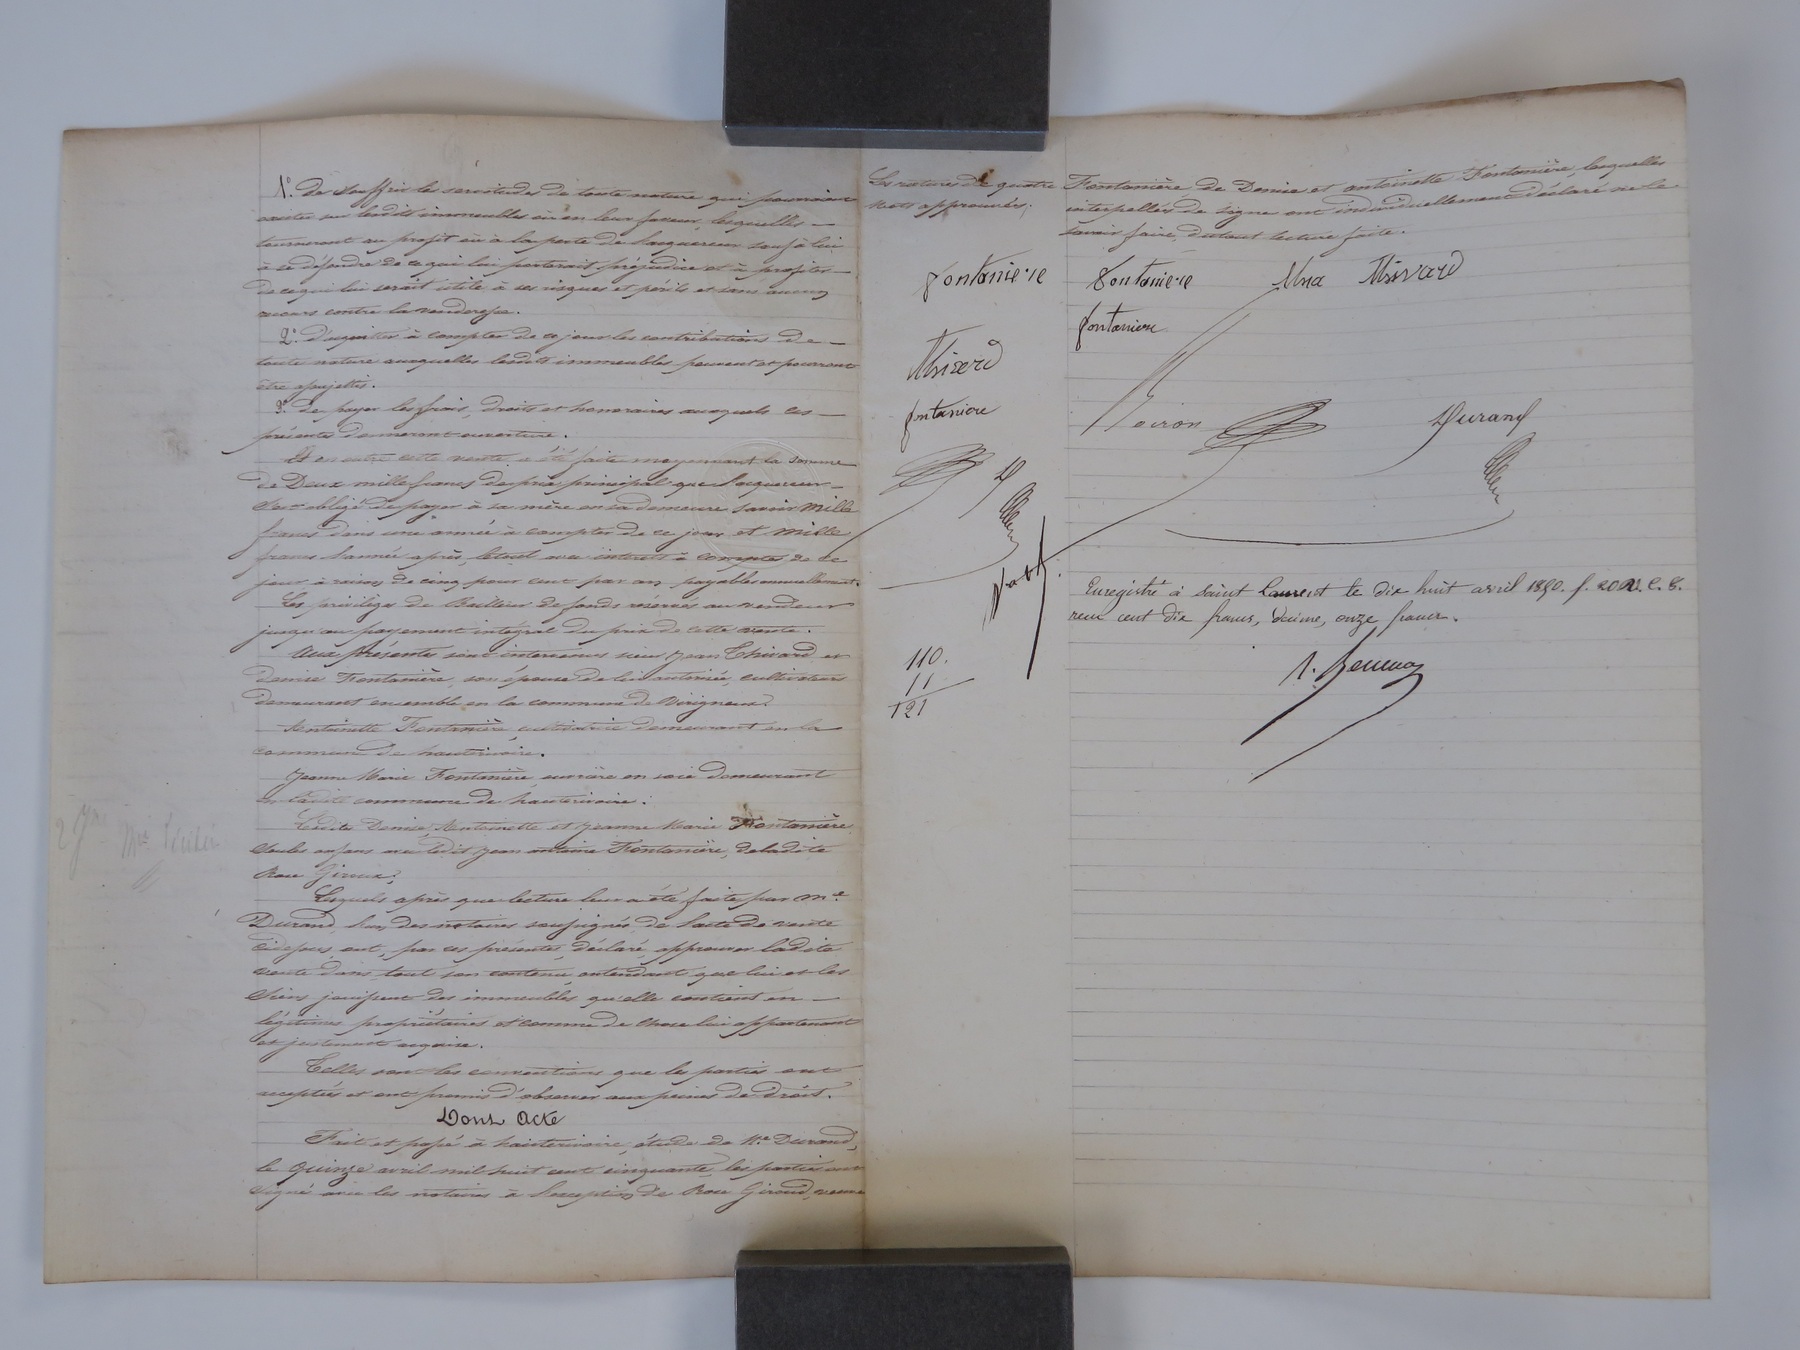 1.° De souffrir les servitudes de toute nature qui pourraient
exister sur lesdits immeubles ou en leur faveur, lesquelles
tourneront au profit ou à la perte de l'acquereur sauf à lui
à se défendre de ce qui lui porterait préjudice et à profiter
de ce qui lui serait utile à ses risques et périls et sans aucun
recours contre la venderesse.
2.° D'acquitter à compter de ce jour les contributions de
toute nature auxquelles lesdits immeubles peuvent et pourront
être assujettis.
3.° De payer les frais, droits et honoraires auxquels ces
présentes donneront ouverture.
Et en outre cette vente a été faite moyennant la somme
de Deux mille francs de prix principal que l'acquereur
s'est obligé de payer à sa mère en sa demeure savoir mille
francs dans une année à compter de ce jour et mille
francs l'année après, le tout avec intérêts à compter de ce
jour à raison de cinq pour cent par an, payables annuellement.
Les privilèges de Bailleur de fonds réservés au vendeur
jusqu'au payement intégral du prix de cette vente.
Aux présentes sont intervenus sieur Jean Thivard et
Denise Fontanière, son épouse de lui autorisée, cultivateurs
demeurant ensemble en la commune de Virigneux.
Antoinette Fontanière, cultivatrice demeurant en la
commune de hauterivoire.
Jeanne Marie Fontanière ouvrière en soie demeurant
en ladite commune de hauterivoire.
Lesdites Denise, Antoinette et Jeanne Marie Fontanière
seules enfans avec ledit Jean antoine Fontanière, de ladite
Rose Giroud;
Lesquels après que lecture leur a été faite par m.e
Durand l'un des notaires soussignés de l'acte de vente
cidessus, ont, par ces présentes, déclaré, approuver ladite
vente dans tout son contenu, entendant que lui et les
siens jouissent des immeubles qu'elle contient en
légitimes propriétaires et comme de chose lui appartenant
et justement acquise.
Telles sont les conventions que les parties ont
acceptées et ont promis d'observer aux peines de droit.
Dont Acte
Fait et passé à hauterivoire, étude de M.e Durand,
le quinze avril mil huit cent cinquante, les parties ont
signé avec les notaires à l'exception de Rose Giroud, veuve
Les ratures de quatre
mots approuvées.
fontaniere
Thivard
fontaniere
110.
11
121
Fontanière de Denise et antoinette Fontanière, lesquelles
interpellées de signer ont individuellement déclaré ne le
savoir faire, du tout lecture faite.
fontaniere Thivard
fontaniere
Durand
Enregistré à Saint Laurent le dix huit avril 1850. f. 20
reçu cent dix francs, décime, onze francs.